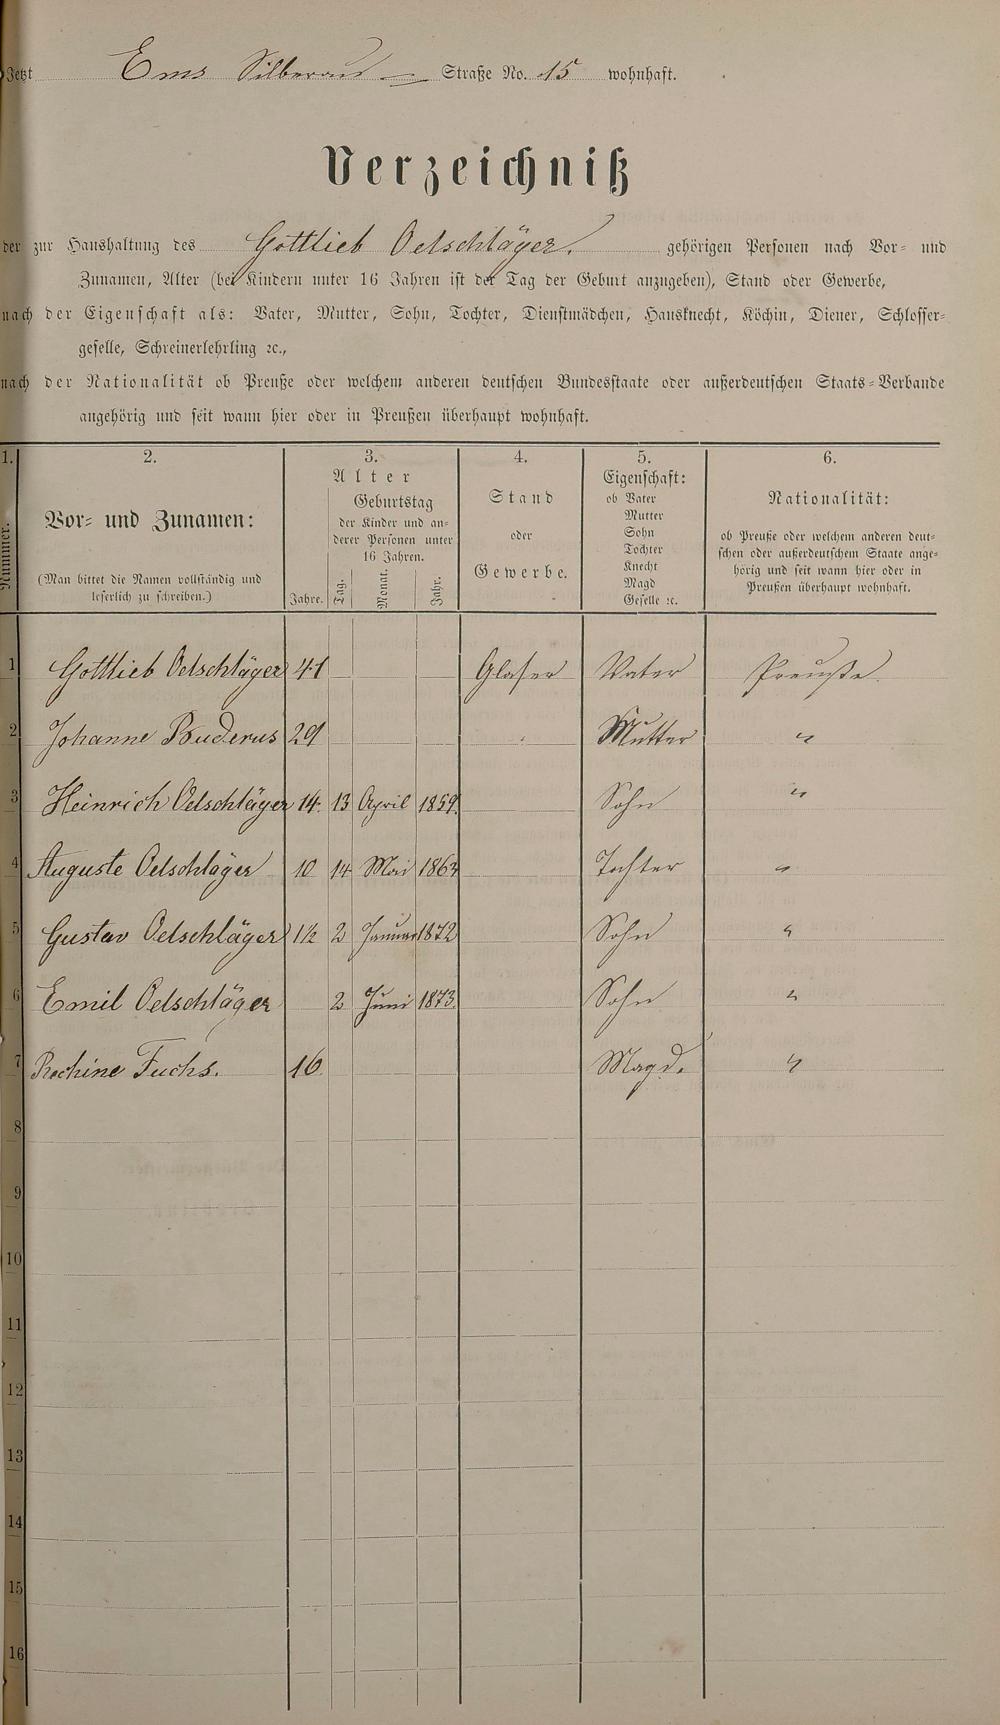 Jetzt Ems Silberau Straße No. 15 wohnhaft.
Verzeichniß
der zur Haushaltung des Gottlieb Oelschläger. gehörigen Personen nach Vor- und
Zunamen, Alter (bei Kindern unter 16 Jahren ist der Tag der Geburt anzugeben), Stand oder Gewerbe,
nach der Eigenschaft als: Vater, Mutter, Sohn, Tochter, Dienstmädchen, Hausknecht, Köchin, Diener, Schlosser-
geselle, Schreinerlehrling ꝛc.,
nach der Nationalität ob Preuße oder welchem anderen deutschen Bundesstaate oder außerdeutschen Staats-Verbande
angehörig und seit wann hier oder in Preußen überhaupt wohnhaft.
1. 2. 3. 4. 5. 6.
Nummer.
Vor- und Zunamen:
(Man bittet die Namen vollständig und
leserlich zu schreiben.)
Alter
Jahre.
Geburtstag
der Kinder und an-
derer Personen unter
16 Jahren.
Tag. Monat. Jahr.
Stand
oder
Gewerbe.
Eigenschaft:
ob Vater
Mutter
Sohn
Tochter
Knecht
Magd
Geselle ꝛc.
Nationalität:
ob Preuße oder welchem anderen deut-
schen oder außerdeutschem Staate ange-
hörig und seit wann hier oder in
Preußen überhaupt wohnhaft.
1 Gottlieb Oelschläger 41 Glaser Vater Preuße.
2 Johanne Buderus 29 Mutter "
3 Heinrich Oelschläger 14. 13 April 1859. Sohn "
4 Auguste Oelschläger 10 14 Mai 1863 Tochter "
5 Gustav Oelschläger 1½ 2 Januar 1872 Sohn "
6 Emil Oelschläger 2 Juni 1873. Sohn "
7 Fuchs. 16 Magd. "
8
9
10
11
12
13
14
15
16